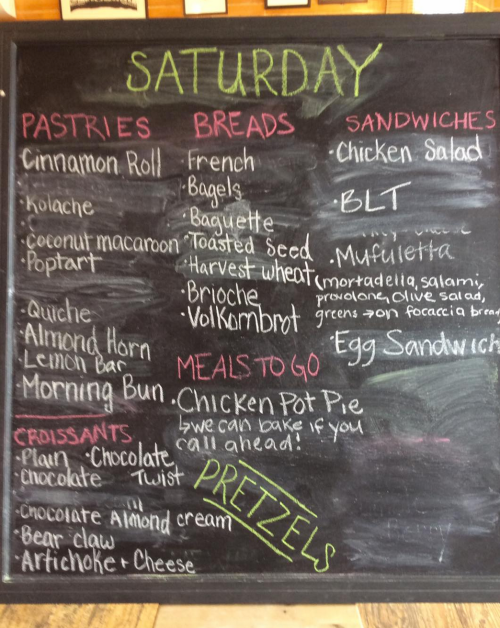 SATURDAY
PASTRIES
·Cinnamon Roll
·Kolache
·coconut macaroon
·Poptart
·Quiche
·Almond Horn
·Lemon Bar
·Morning Bun
CROISSANTS
·Plain ·Chocolate
·Chocolate Twist
·Chocolate Almond cream
·Bear claw
·Artichoke + Cheese
BREADS
·French
·Bagels
·Baguette
·Toasted Seed
·Harvest wheat
·Brioche
·Volkornbrot
MEALS TO GO
·Chicken Pot Pie
↳we can bake if you
call ahead!
PRETZELS
SANDWICHES
·Chicken Salad
·BLT
·Mufuletta
(mortadella, salami,
provolone, olive salad,
greens → on focaccia bread
·Egg Sandwich